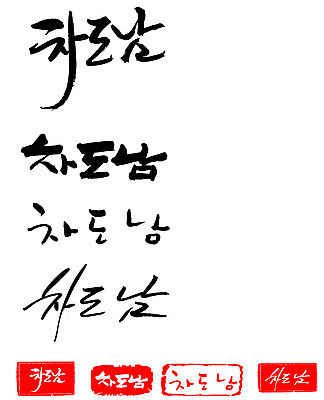 차도남
차도남
차도남
차도남
차도남 차도남 차도남 차도남